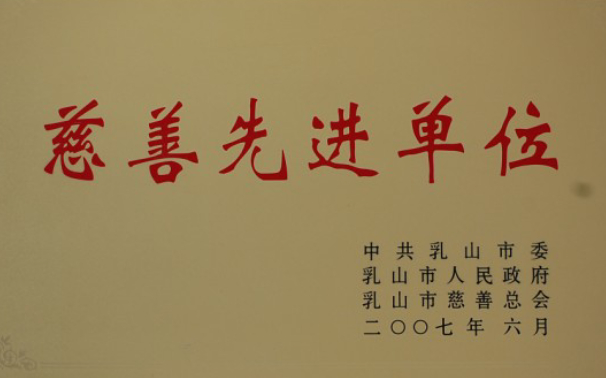 慈善先进单位
中共乳山市委
乳山市人民政府
乳山市慈善总会
二〇〇七年六月